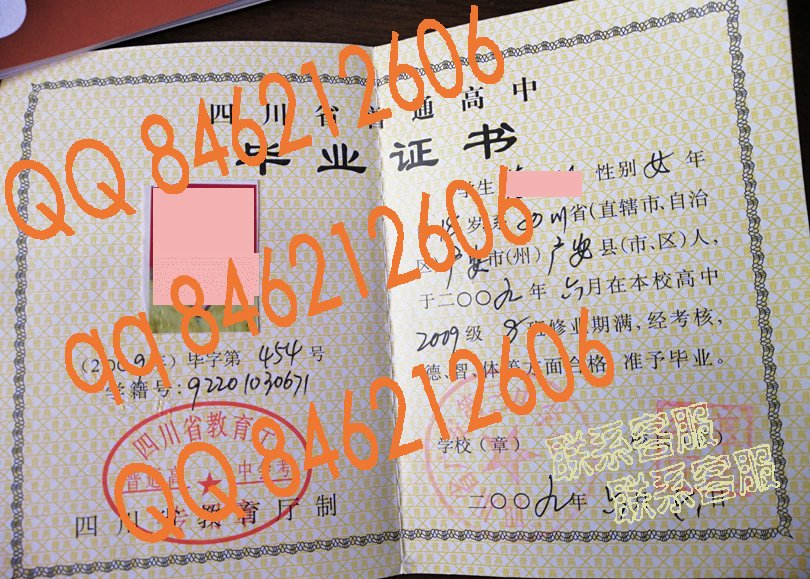 四川省普通高中
毕业证书
QQ 846212606
qq 846212606
QQ 846212606
(2009年)毕字第 454 号
学籍号:92201030671
四川省教育厅
普通高 中
四川 教育厅制
学生 性别 女 年
岁,系 四川省(直辖市、自治
区)广安市(州)广安县(市、区)人,
于二〇〇九年 六月在本校高中
2009级 班修业期满,经考核,
德、智、体等方面合格,准予毕业。
学校(章)
二〇〇九年
联系客服
联系客服